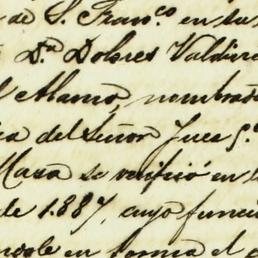 de S. Fran.co en su
D.ña Dolores Valdi
Alamo, nombrad
del Señor Juez 5.º
Maza se verificó en
de 1.887, cuyo funci
en forma el